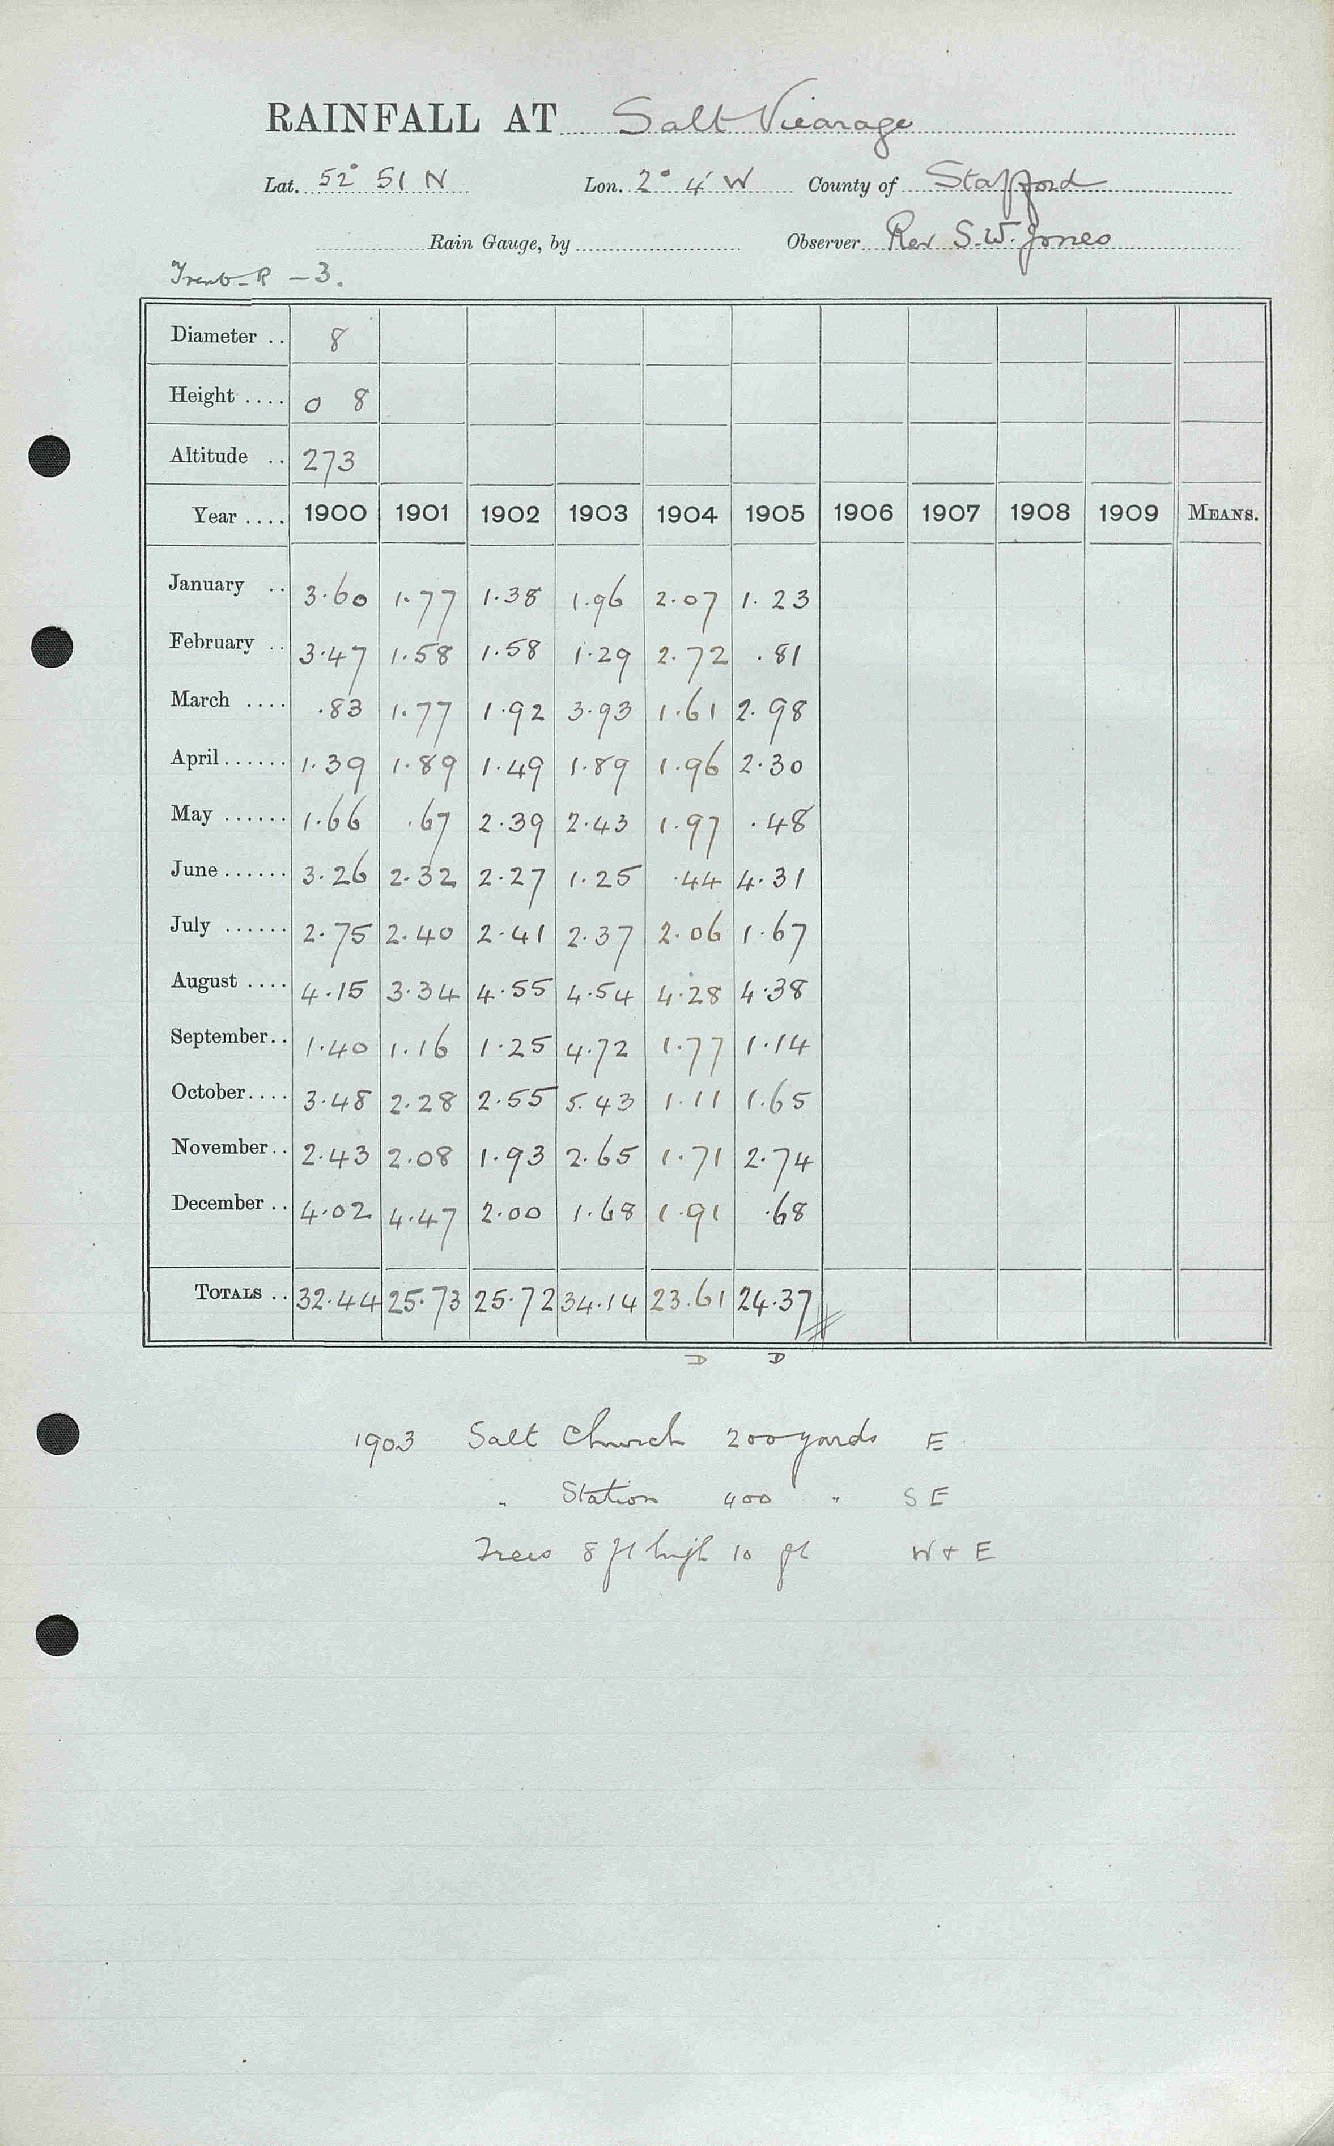 RAINFALL AT Salt Vicarage
Lat. 52° 51 N Lon. 2° 4' W County of Stafford
Rain Gauge, by Observer Rev S. W. Jones
Trent-R - 3.
Diameter .. 8
Height .... 0 8
Altitude .. 273
Year .... 1900 1901 1902 1903 1904 1905 1906 1907 1908 1909 MEANS.
January .. 3.60 1.77 1.38 1.96 2.07 1.23
February .. 3.47 1.58 1.58 1.29 2.72 .81
March .... .83 1.77 1.92 3.93 1.61 2.98
April...... 1.39 1.89 1.49 1.89 1.96 2.30
May ...... 1.66 .67 2.39 2.43 1.97 .48
June...... 3.26 2.32 2.27 1.25 .44 4.31
July ...... 2.75 2.40 2.41 2.37 2.06 1.67
August .... 4.15 3.34 4.55 4.54 4.28 4.38
September.. 1.40 1.16 1.25 4.72 1.77 1.14
October.... 3.48 2.28 2.55 5.43 1.11 1.65
November.. 2.43 2.08 1.93 2.65 1.71 2.74
December .. 4.02 4.47 2.00 1.68 1.91 .68
TOTALS .. 32.44 25.73 25.72 34.14 23.61 24.37
D D
1903 Salt Church 200 yards E
" Station 400 " SE
Trees 8 ft high 10 ft W + E